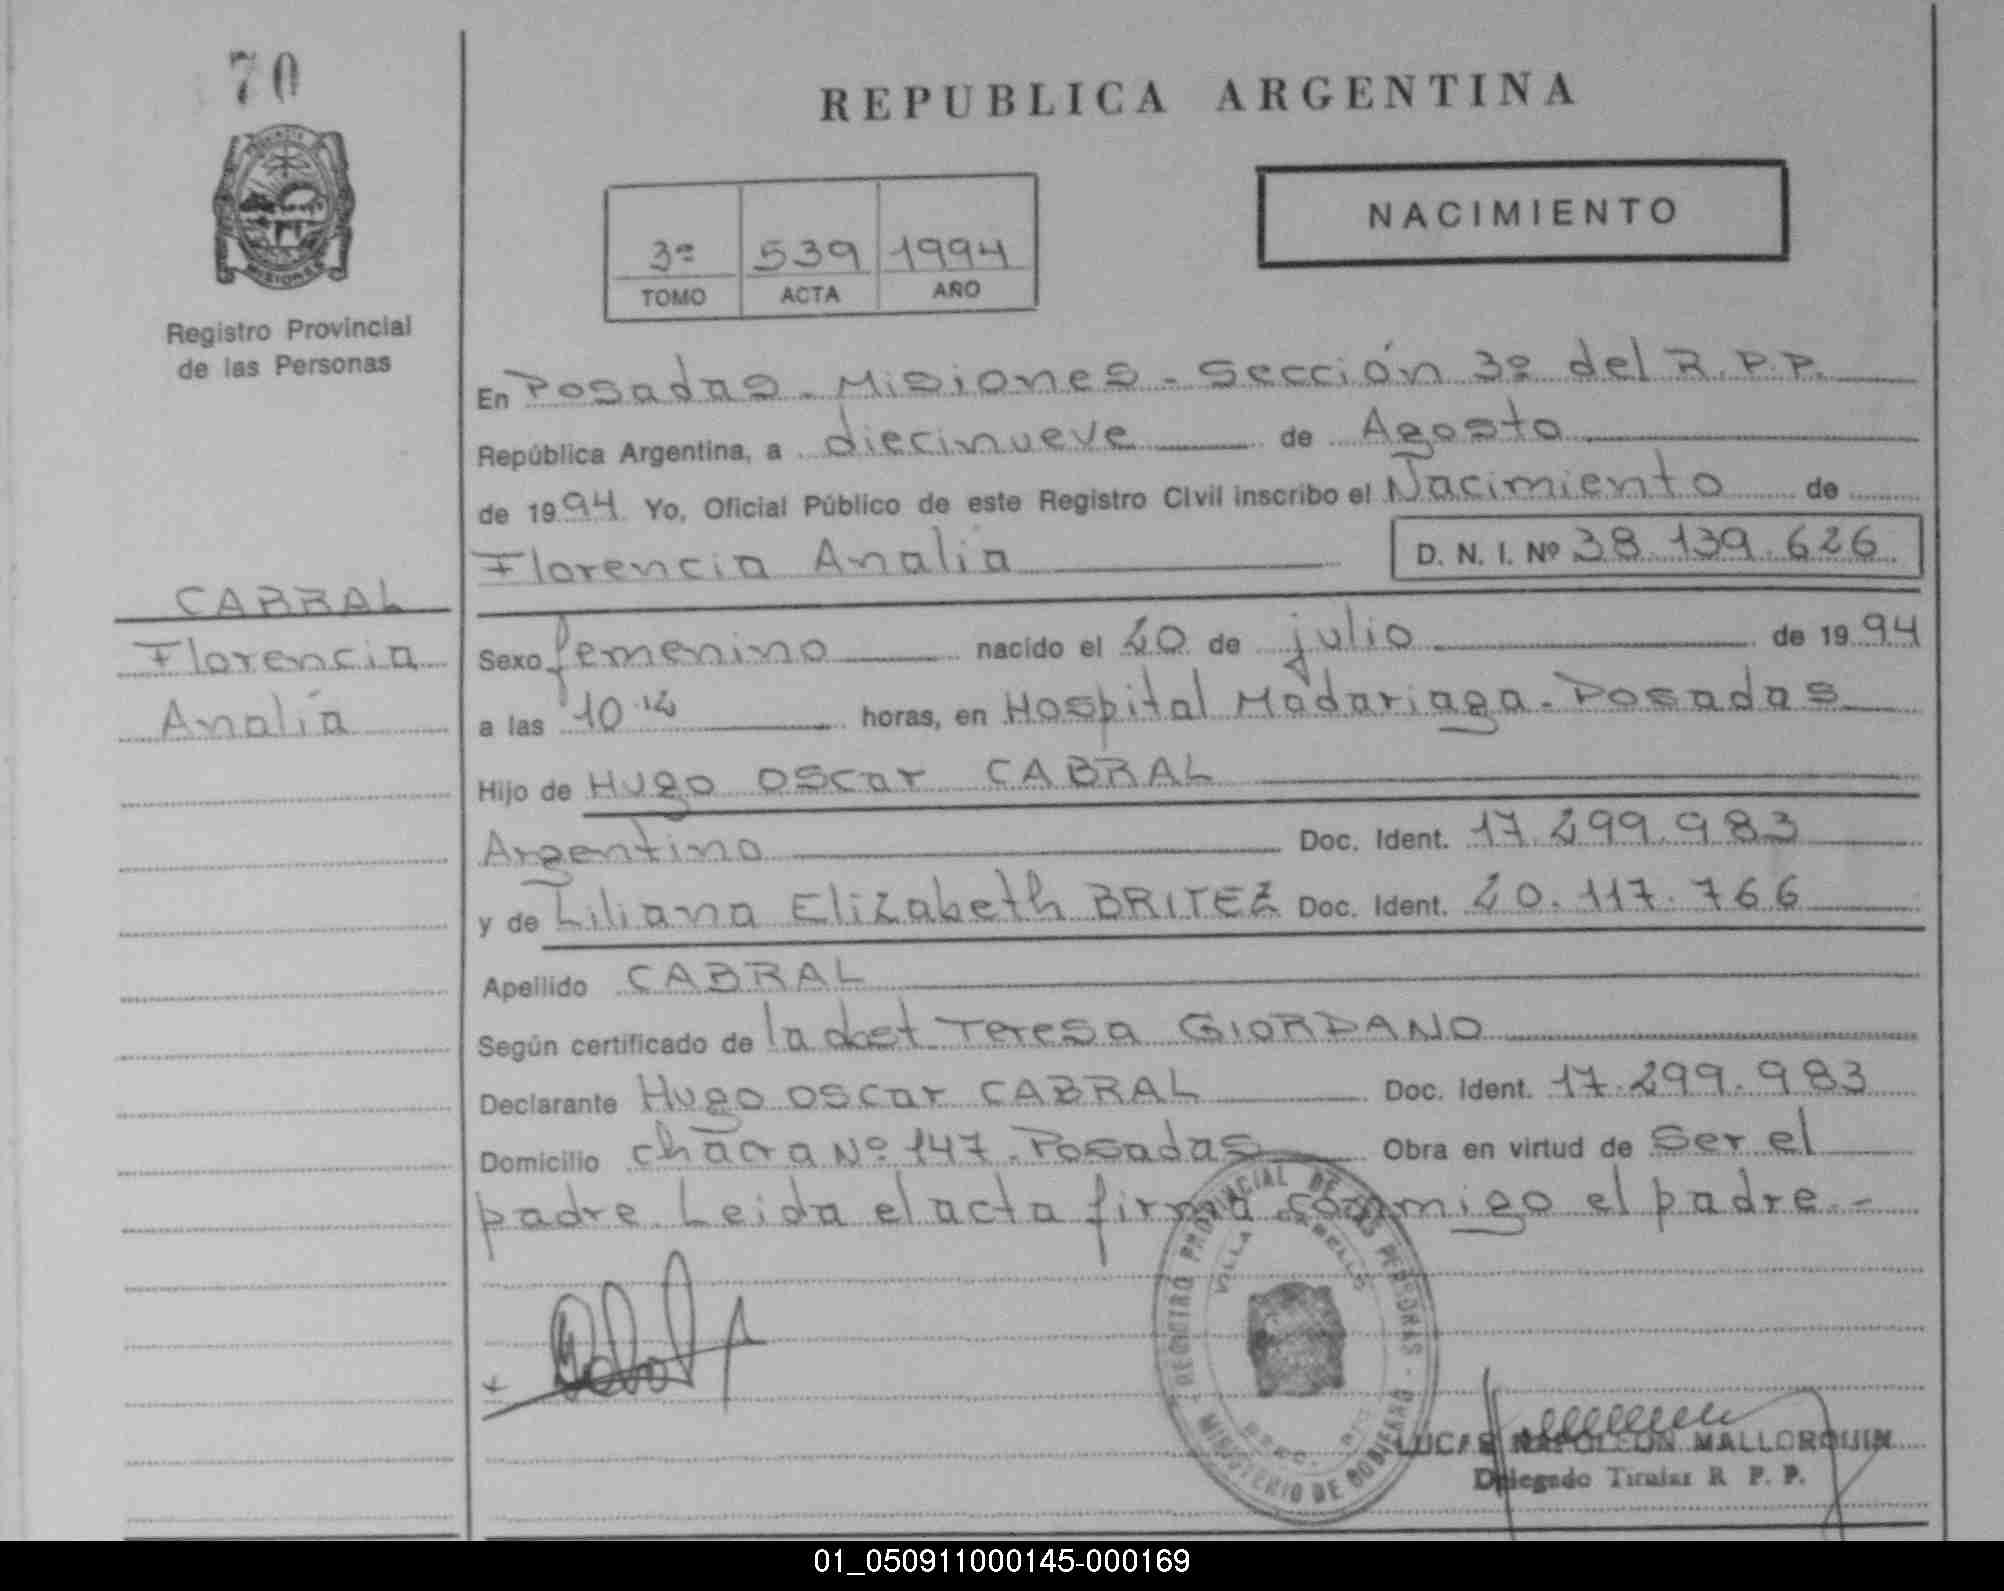 70
REPUBLICA ARGENTINA
NACIMIENTO
3ª 539 1994
TOMO ACTA AÑO
Registro Provincial
de las Personas
En Posadas - Misiones - Sección 3ª del R.P.P.
República Argentina, a diecinueve de Agosto
de 1994 Yo, Oficial Público de este Registro Civil inscribo el Nacimiento de
Florencia Analía D. N. I. Nº 38.139.626
CABRAL
Florencia
Analía
Sexo femenino nacido el 20 de julio de 1994
a las 10.14 horas, en Hospital Madariaga - Posadas
Hijo de Hugo Oscar CABRAL
Argentino Doc. Ident. 17.299.983
y de Liliana Elizabeth BRITEZ Doc. Ident. 20.117.766
Apellido CABRAL
Según certificado de la obst Teresa GIORDANO
Declarante Hugo Oscar CABRAL Doc. Ident. 17.299.983
Domicilio chacra Nº 147 - Posadas Obra en virtud de Ser el
padre. Leida el acta firma conmigo el padre.-
REGISTRO PROVINCIAL DE LAS PERSONAS - MINISTERIO DE GOBIERNO
VILLA CABELLO
LUCAS NAPOLEON MALLORQUIN
Delegado Titular R. P. P.
MISIONES
01_050911000145-000169